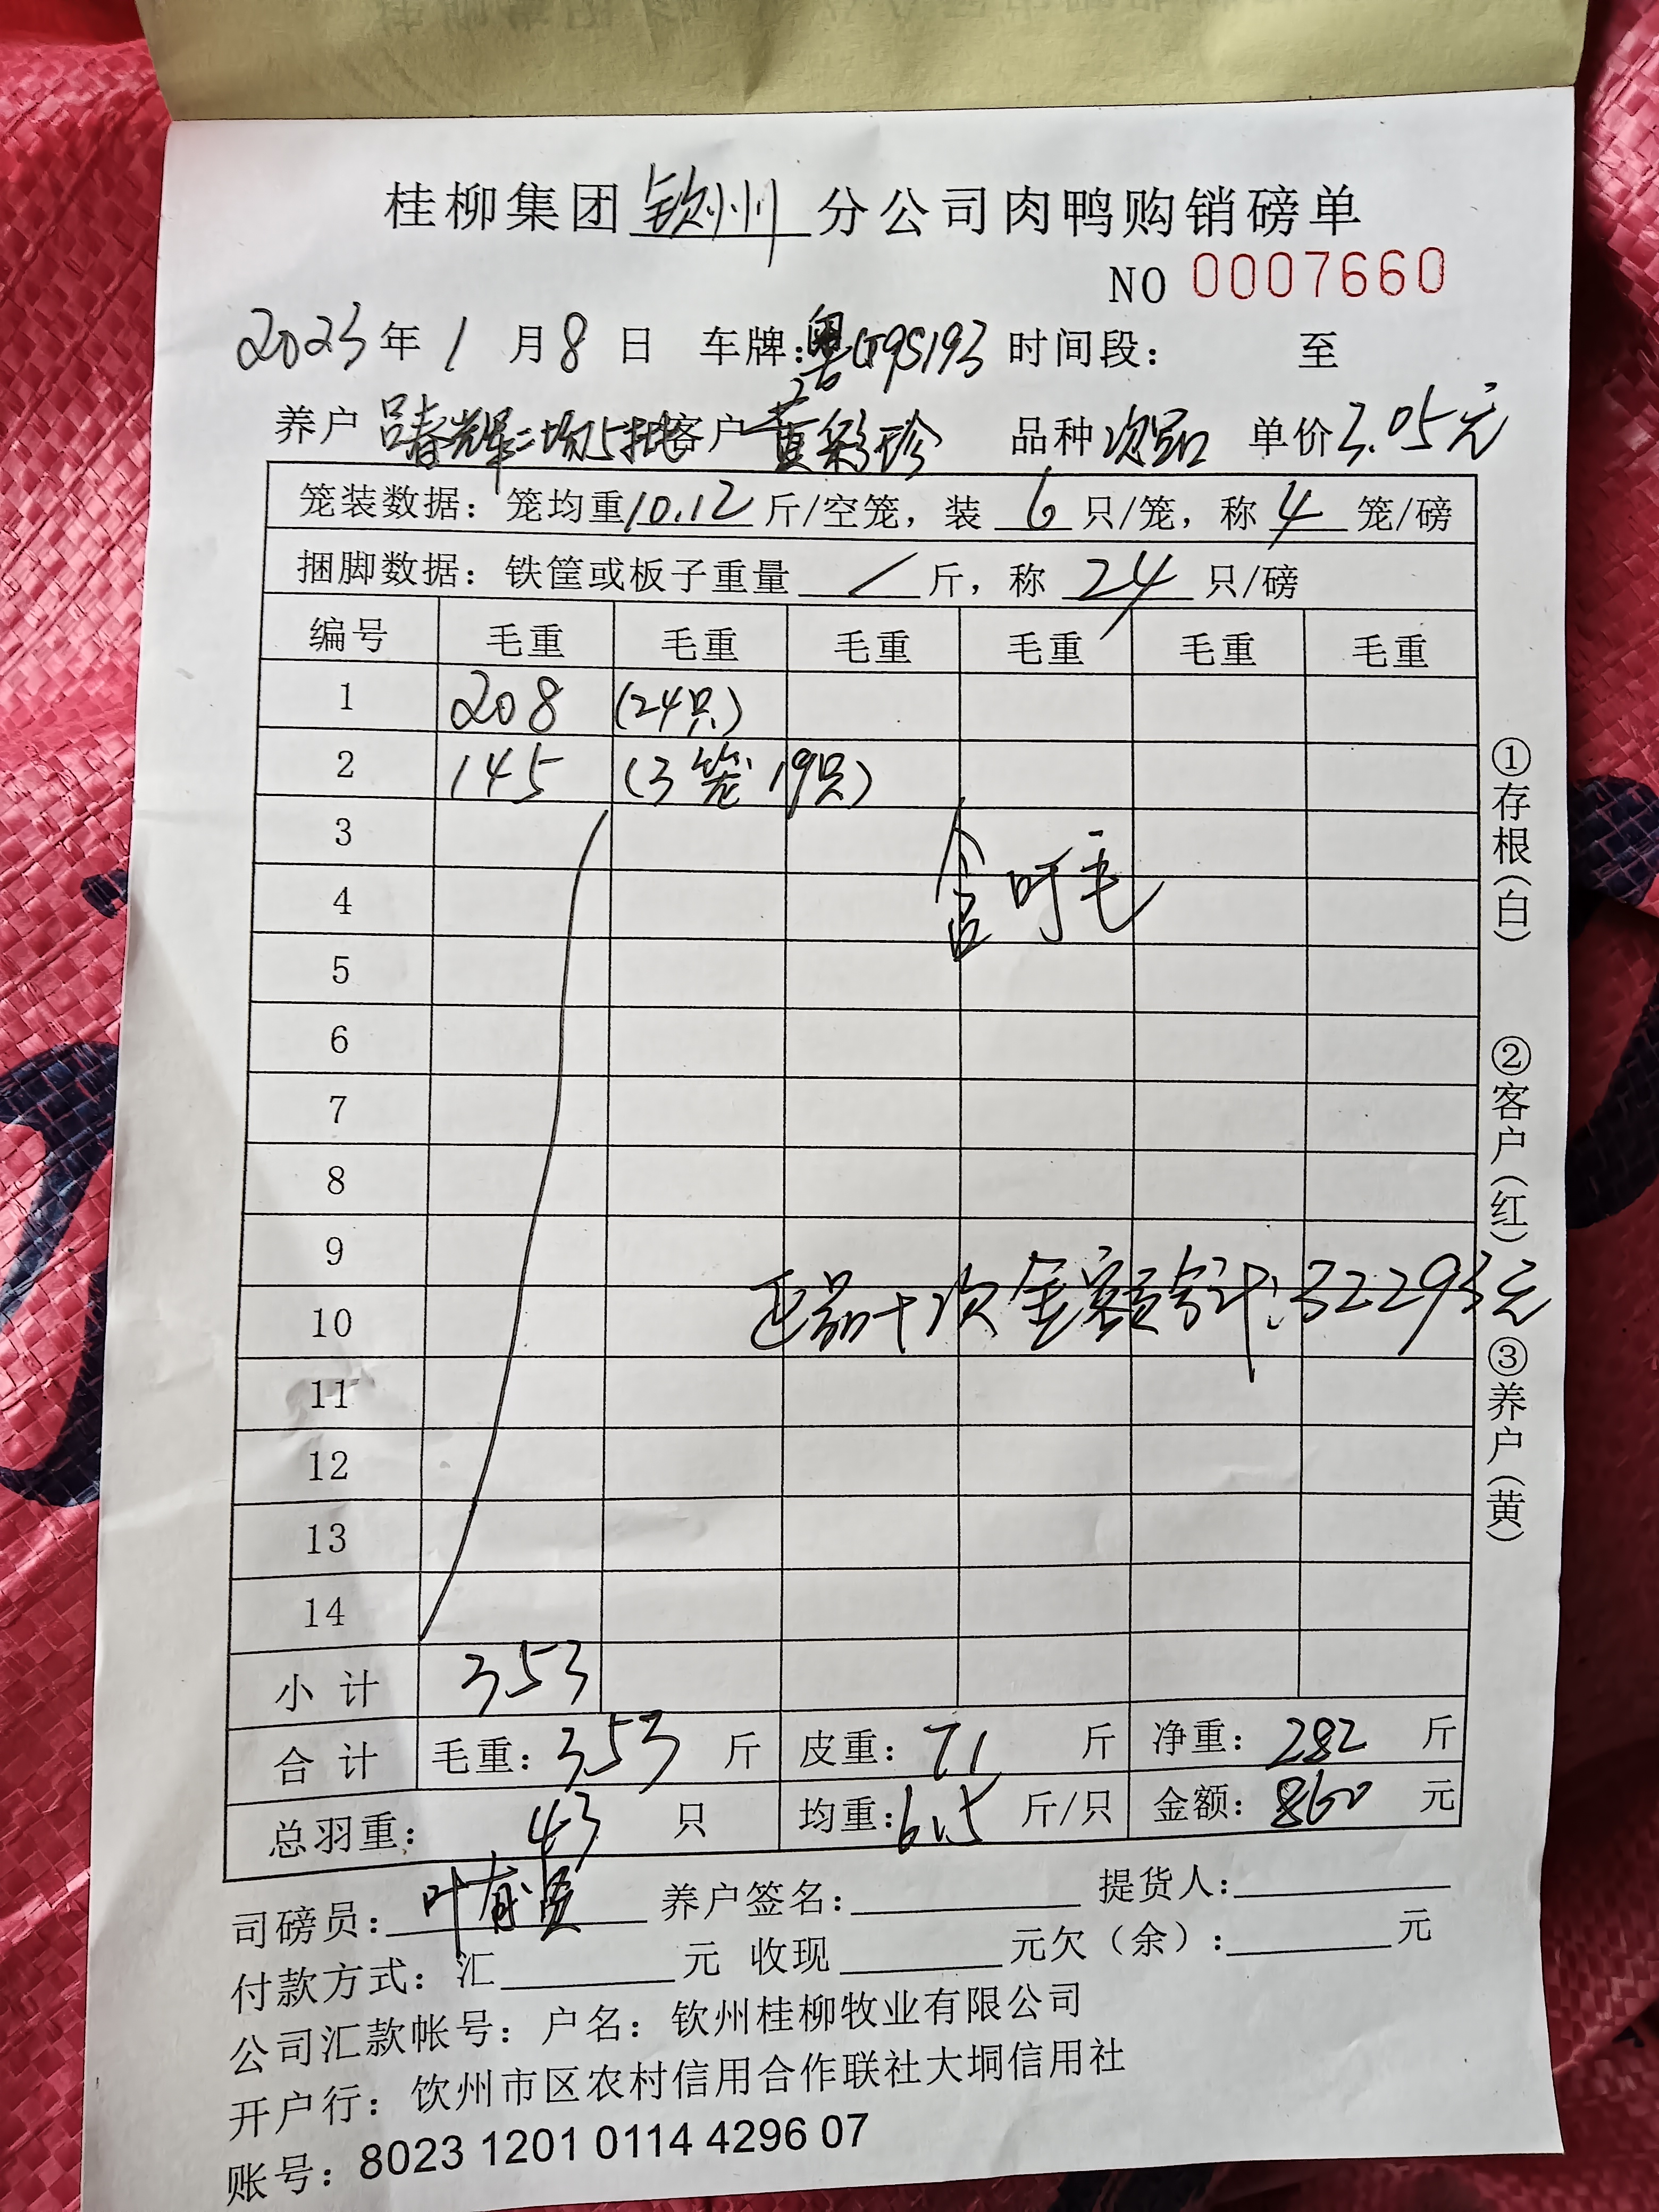 桂柳集团钦州分公司肉鸭购销磅单
NO 0007660
2023年1月8日 车牌:粤G9S193 时间段: 至
养户 吕春辉二场5批 客户 黄彩珍 品种 次品 单价3.05元
笼装数据:笼均重10.12斤/空笼,装6只/笼,称4笼/磅
捆脚数据:铁筐或板子重量/斤,称24只/磅
编号 毛重 毛重 毛重 毛重 毛重 毛重
1 208 (24只)
2 145 (3笼 19只)
3
4 含叮毛
5
6
7
8
9
10 正品+次金额合计:32293元
11
12
13
14
小计 353
合计 毛重:353斤 皮重:71斤 净重:282斤
总羽重:43只 均重:6.5斤/只 金额:860元
司磅员:叶 养户签名: 提货人:
付款方式:汇 元 收现 元欠(余): 元
公司汇款帐号:户名:钦州桂柳牧业有限公司
开户行:钦州市区农村信用合作联社大垌信用社
账号:8023 1201 0114 4296 07
①存根(白) ②客户(红) ③养户(黄)